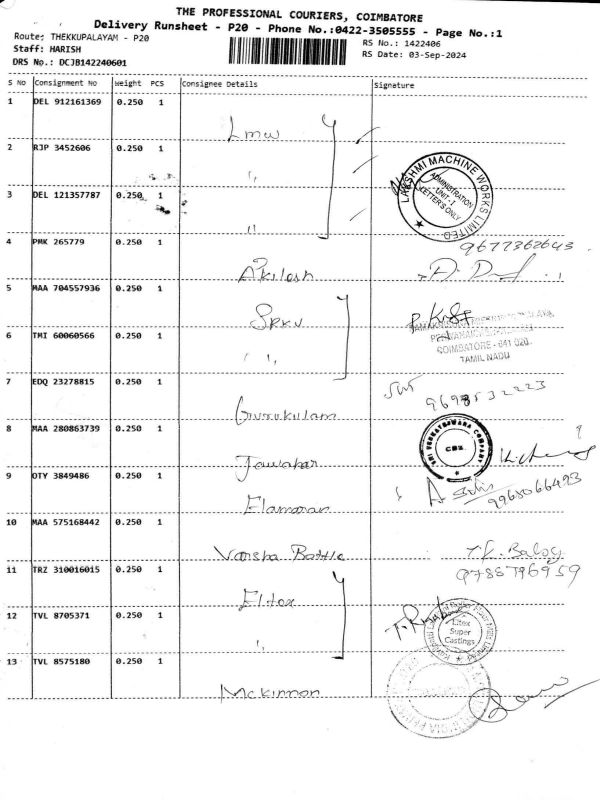 THE PROFESSIONAL COURIERS, COIMBATORE
Delivery Runsheet - P20 - Phone No.:0422-3505555 - Page No.:1
Route: THEKKUPALAYAM - P20
RS No.: 1422406
Staff: HARISH
RS Date: 03-Sep-2024
DRS No.: DCJB142240601
S No Consignment No Weight PCS Consignee Details Signature
1 DEL 912161369 0.250 1
Lmw
2 RJP 3452606 0.250 1
"
LAKSHMI MACHINE WORKS LIMITED
ADMINISTRATION
UNIT - I
LETTER'S ONLY
3 DEL 121357787 0.250 1
"
4 PMK 265779 0.250 1
9677362643
Akilesh
5 MAA 704557936 0.250 1
SRKV
6 TMI 60060566 0.250 1
COIMBATORE - 641 020
TAMIL NADU
"
7 EDQ 23278815 0.250 1
9698532223
Gurukulam
8 MAA 280863739 0.250 1
SRI VENKATESHWARA COMPANY
CBE
Jawahar
9 OTY 3849486 0.250 1
9965066493
Elamaran
10 MAA 575168442 0.250 1
Varsha Battle
T.K. Balog
11 TRZ 310016015 0.250 1
9788796959
Eltex
12 TVL 8705371 0.250 1
Litex
Super
Castings
"
13 TVL 8575180 0.250 1
Mckinnon